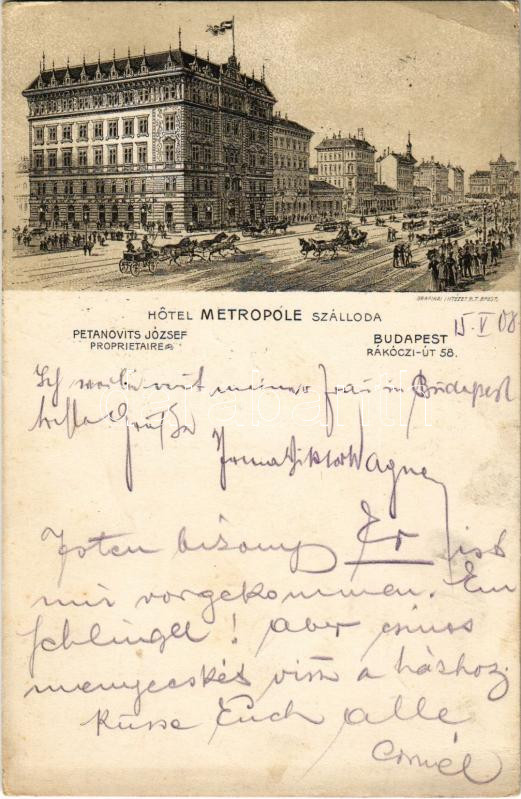 GRAFIKAI INTÉZET R.T. BPEST.
HÔTEL METROPÓLE SZÁLLODA
PETANOVITS JÓZSEF
PROPRIETAIRE
BUDAPEST
RÁKÓCZI-ÚT 58.
15. V 08
Ich weile mit meiner Frau in Budapest
Grüße
Irma Viktor Wagner
Isten bizony Er ist
mir vorgekommen. Ein
Schlingel! aber csinos
menyecskés visz a házhoz.
Küsse Euch alle
Cornél